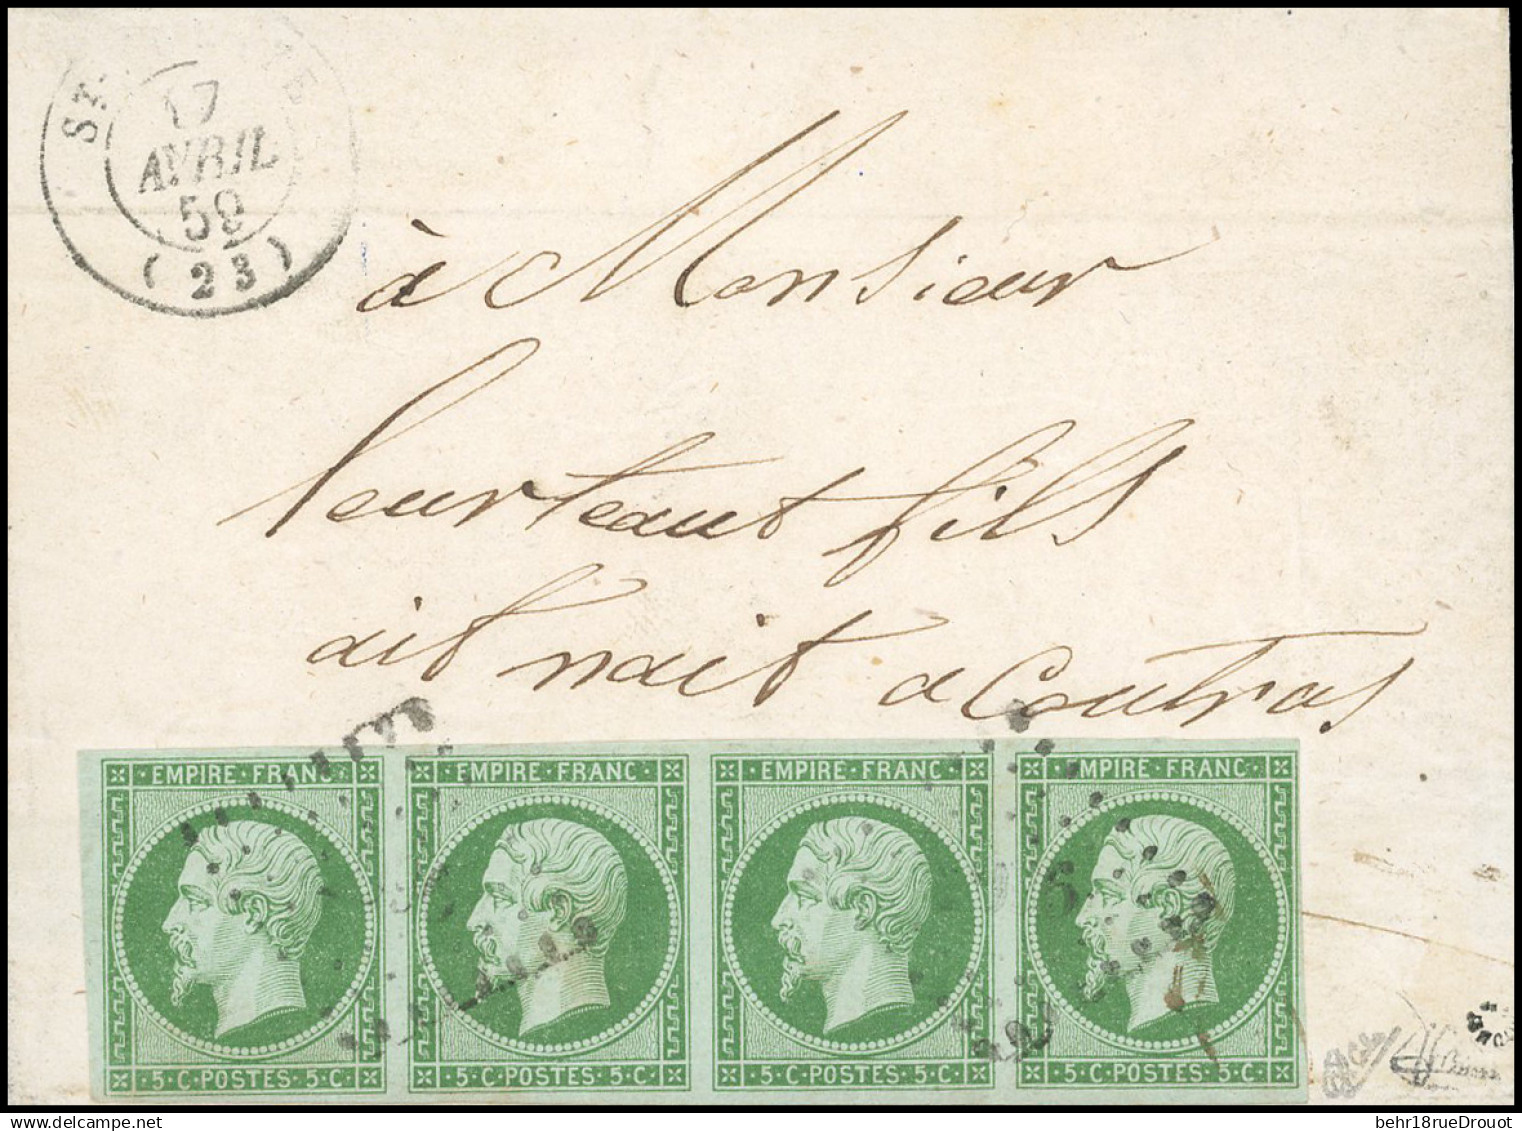 ST
TE
17
AVRIL
59
(23)
à Monsieur
leurteaut fils
dit nait a Coutras
EMPIRE FRANC EMPIRE FRANC EMPIRE FRANC EMPIRE FRANC
5
5·C·POSTES·5·C· 5·C·POSTES·5·C· 5·C·POSTES·5·C· 5·C·POSTES·5·C·
behr18rueDrouot